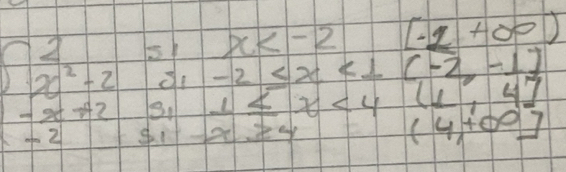 2 si x < -2 [-2 +∞)
x² - 2 si -2 < x < 1 (-2, -1]
-x + 2 si 1 ≤ x < 4 (1, 4]
-2 si x ≥ 4 (4, +∞]